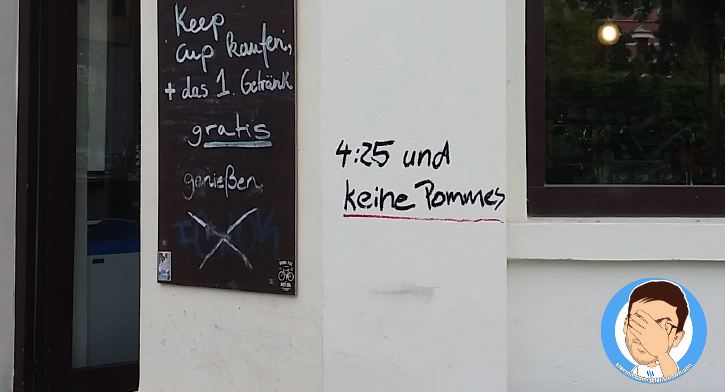 Keep
cup kaufen,
+ das 1. Getränk
gratis
genießen
4:25 und
keine Pommes